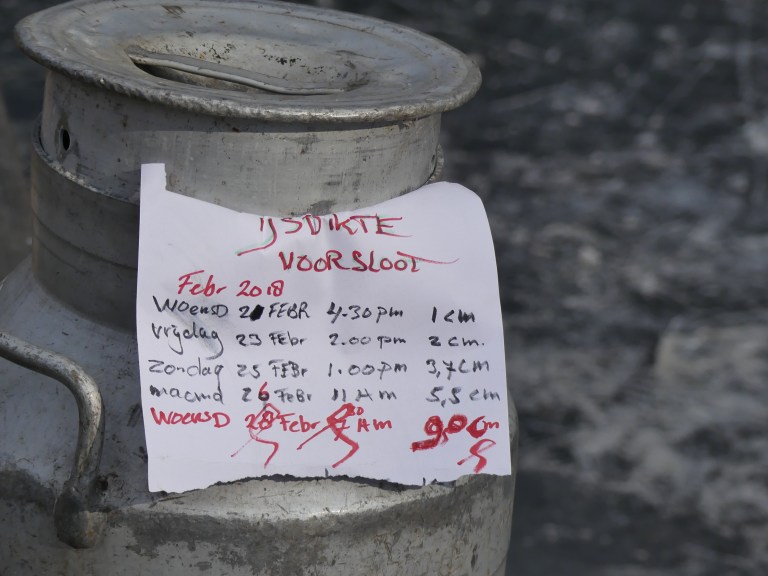 IJSDIKTE
VOORSLOOT
Febr 2018
WOENSD 21 FEBR 4.30 pm 1 cm
vrijdag 23 FEbr 2.00 pm 2 cm.
zondag 25 FEBr 1.00 pm 3,7 cm
maand 26 FeBr 11 Am 5,5 cm
WOENSD 28 Febr Am 9,0 cm